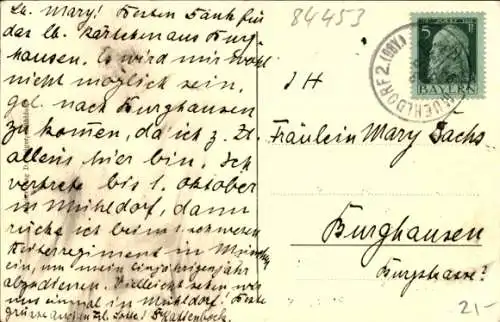 Lb. Mary! Besten Dank für
das lb. Kärtchen aus Burg-
hausen. Es wird mir wohl
nicht möglich sein,
gel. nach Burghausen
zu kom̄en, da ich z. Zt.
allein hier bin. Ich
vertrete bis 1. Oktober
in Mühldorf, dann
rücke ich beim 1. schweren
Reiterregiment in München
ein, um mein einjährigenjahr
abzudienen. Vielleicht sehen wir
uns einmal in Mühldorf! Beste
grüsse
84453
MUEHLDORF 2. (OBB.)
5 PF
BAYERN
I H
Fräulein Mary Sachs
Burghausen
Burgstrasse?
21-